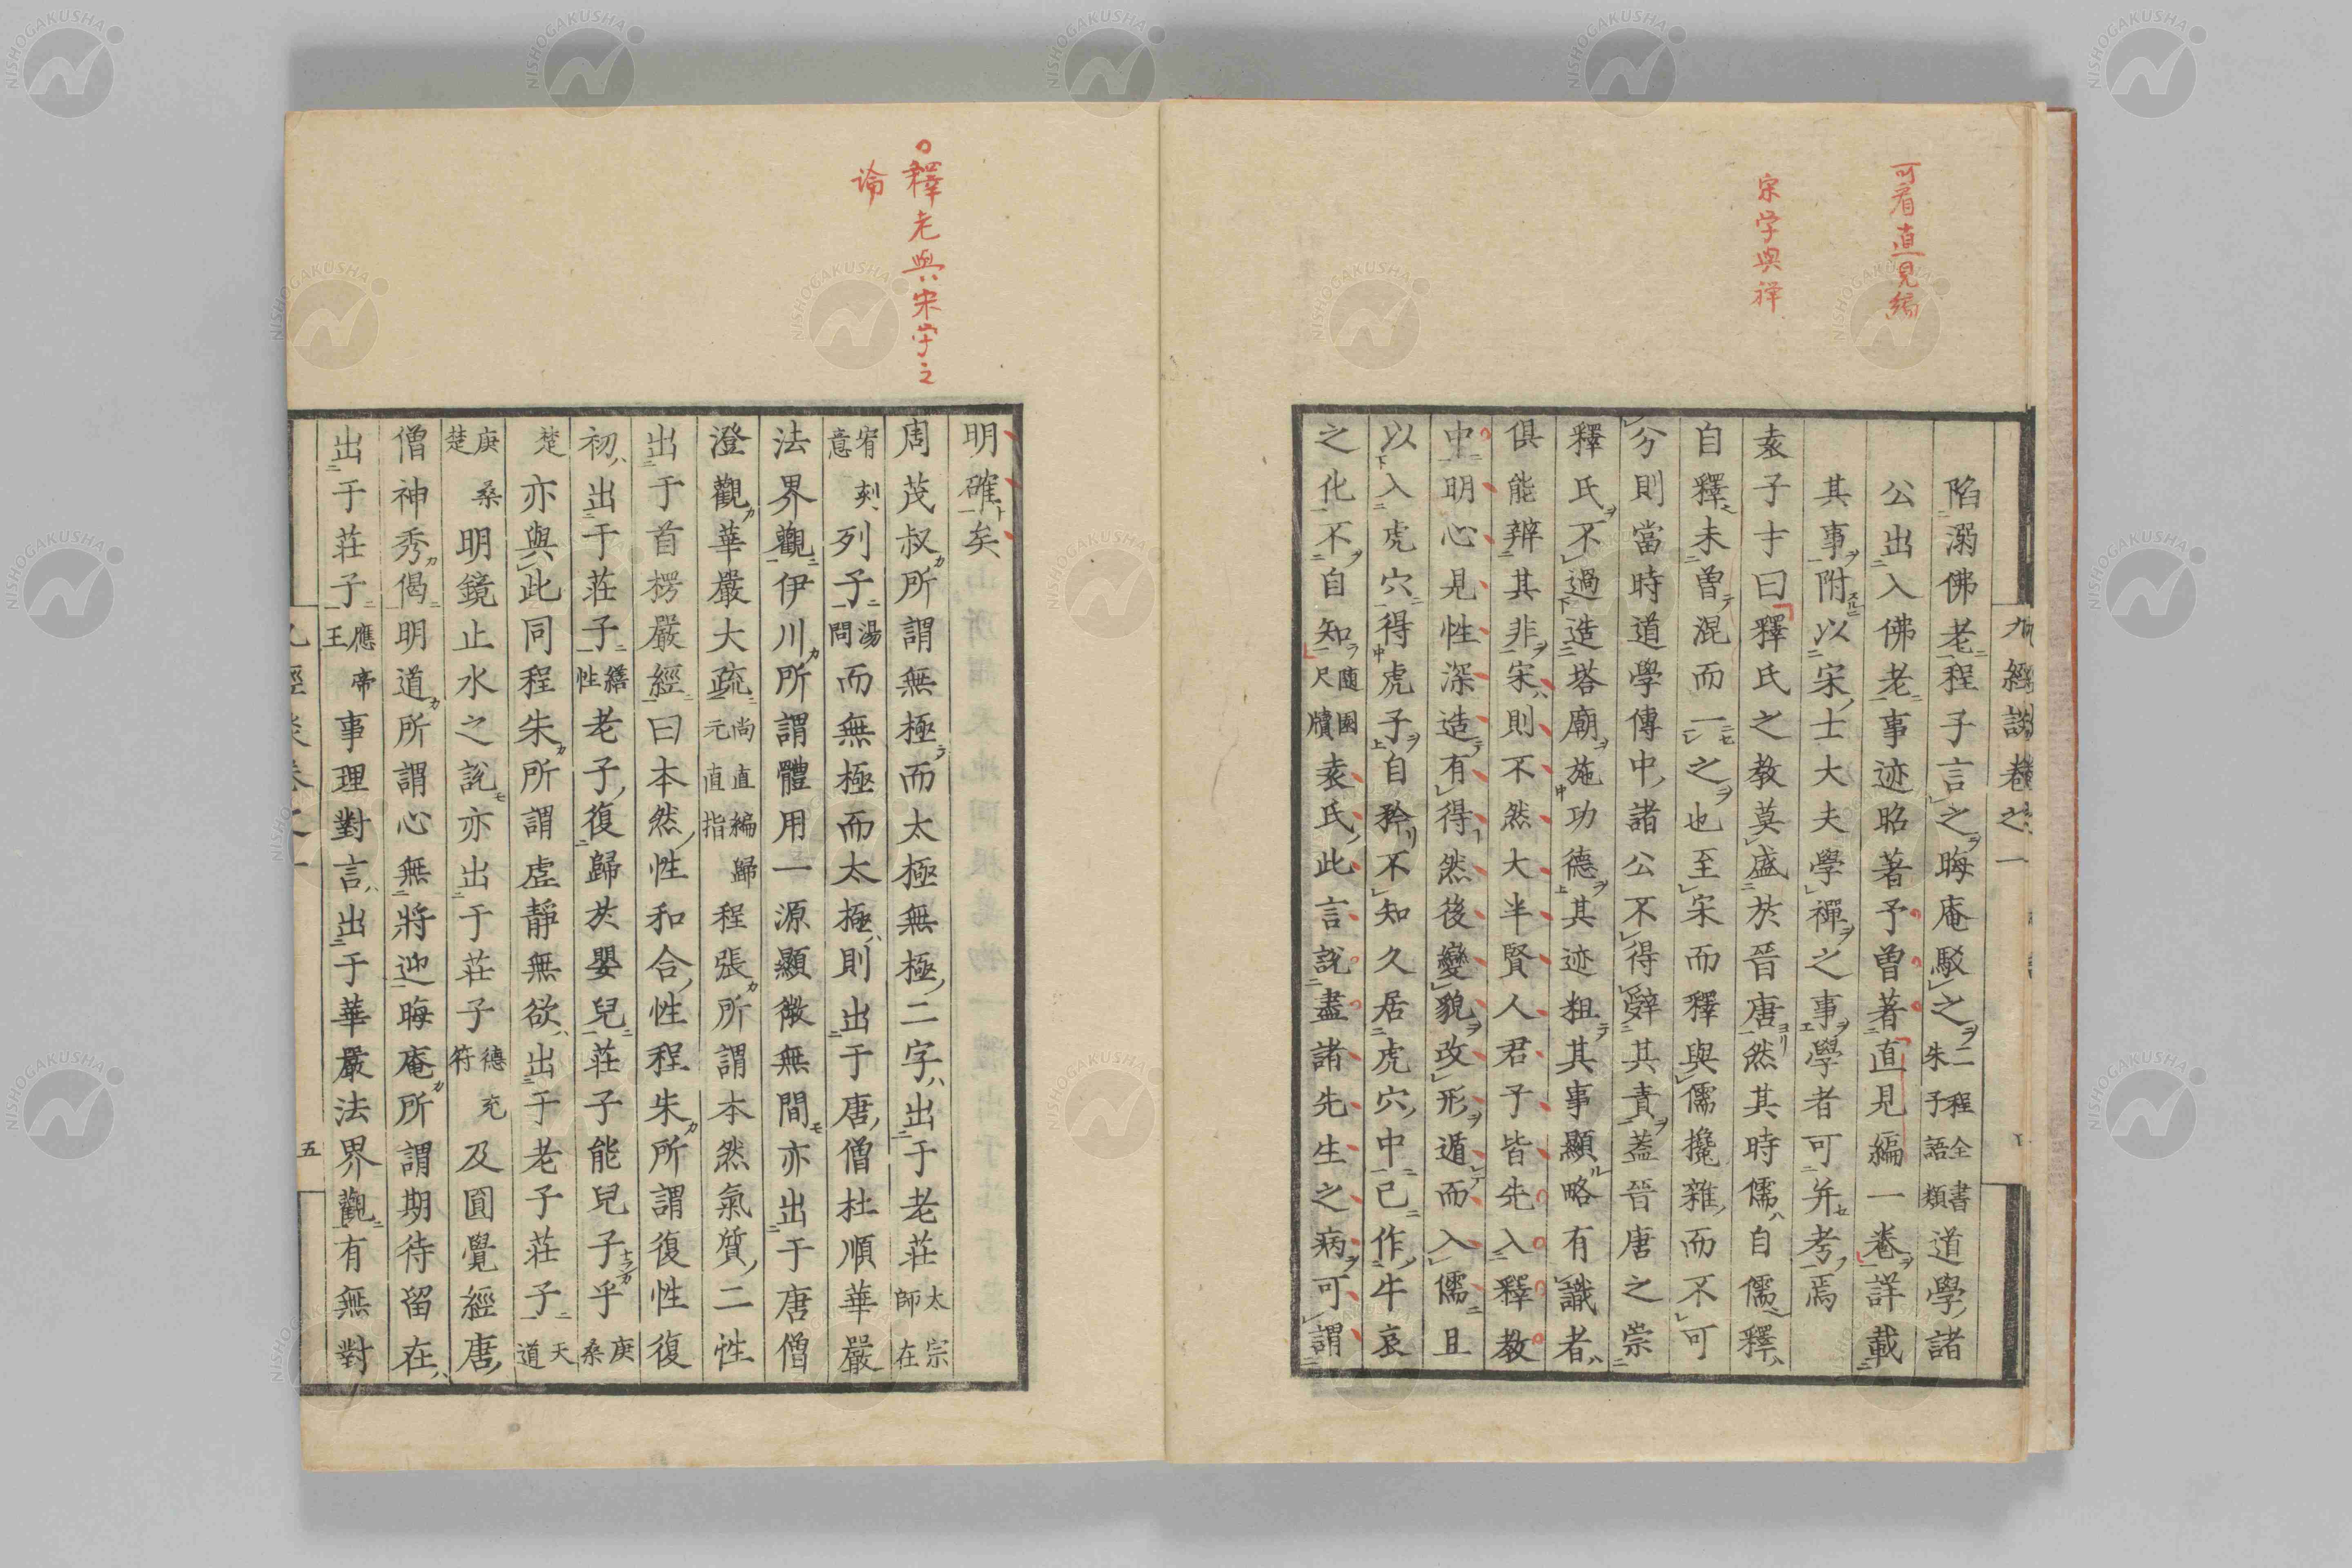 可看直見編
宋学與禅
九經談卷之一
陷溺佛老程子言之晦庵駁之二程全書朱子語類道學諸
公出入佛老事迹昭著予曾著直見編一卷詳載
其事附以宋士大夫學禪之事學者可并考焉
袁子才曰釋氏之教莫盛於晉唐然其時儒自儒釋
自釋未曾混而一之也至宋而釋與儒攙雜而不可
分則當時道學傳中諸公不得辭其責蓋晉唐之崇
釋氏不過造塔廟施功德其迹粗其事顯略有識者
俱能辨其非宋則不然大半賢人君子皆先入釋教
中明心見性深造有得然後變貌改形遁而入儒且
以入虎穴得虎子自矜不知久居虎穴中已作牛哀
之化不自知隨園尺牘袁氏此言説盡諸先生之病可謂
釋老與宋学之
论
明確矣
周茂叔所謂無極而太極無極二字出于老莊太宗師在
宥刻意列子湯問而無極而太極則出于唐僧杜順華嚴
法界觀伊川所謂體用一源顯微無間亦出于唐僧
澄觀華嚴大疏尚直編歸元直指程張所謂本然氣質二性
出于首楞嚴經曰本然性和合性程朱所謂復性復
初出于莊子繕性老子復歸於嬰兒莊子能兒子乎庚桑
楚亦與此同程朱所謂虛靜無欲出于老子莊子天道
庚桑楚明鏡止水之説亦出于莊子德充符及圓覺經唐
僧神秀偈明道所謂心無將迎晦庵所謂期待留在
出于莊子應帝王事理對言出于華嚴法界觀有無對
五